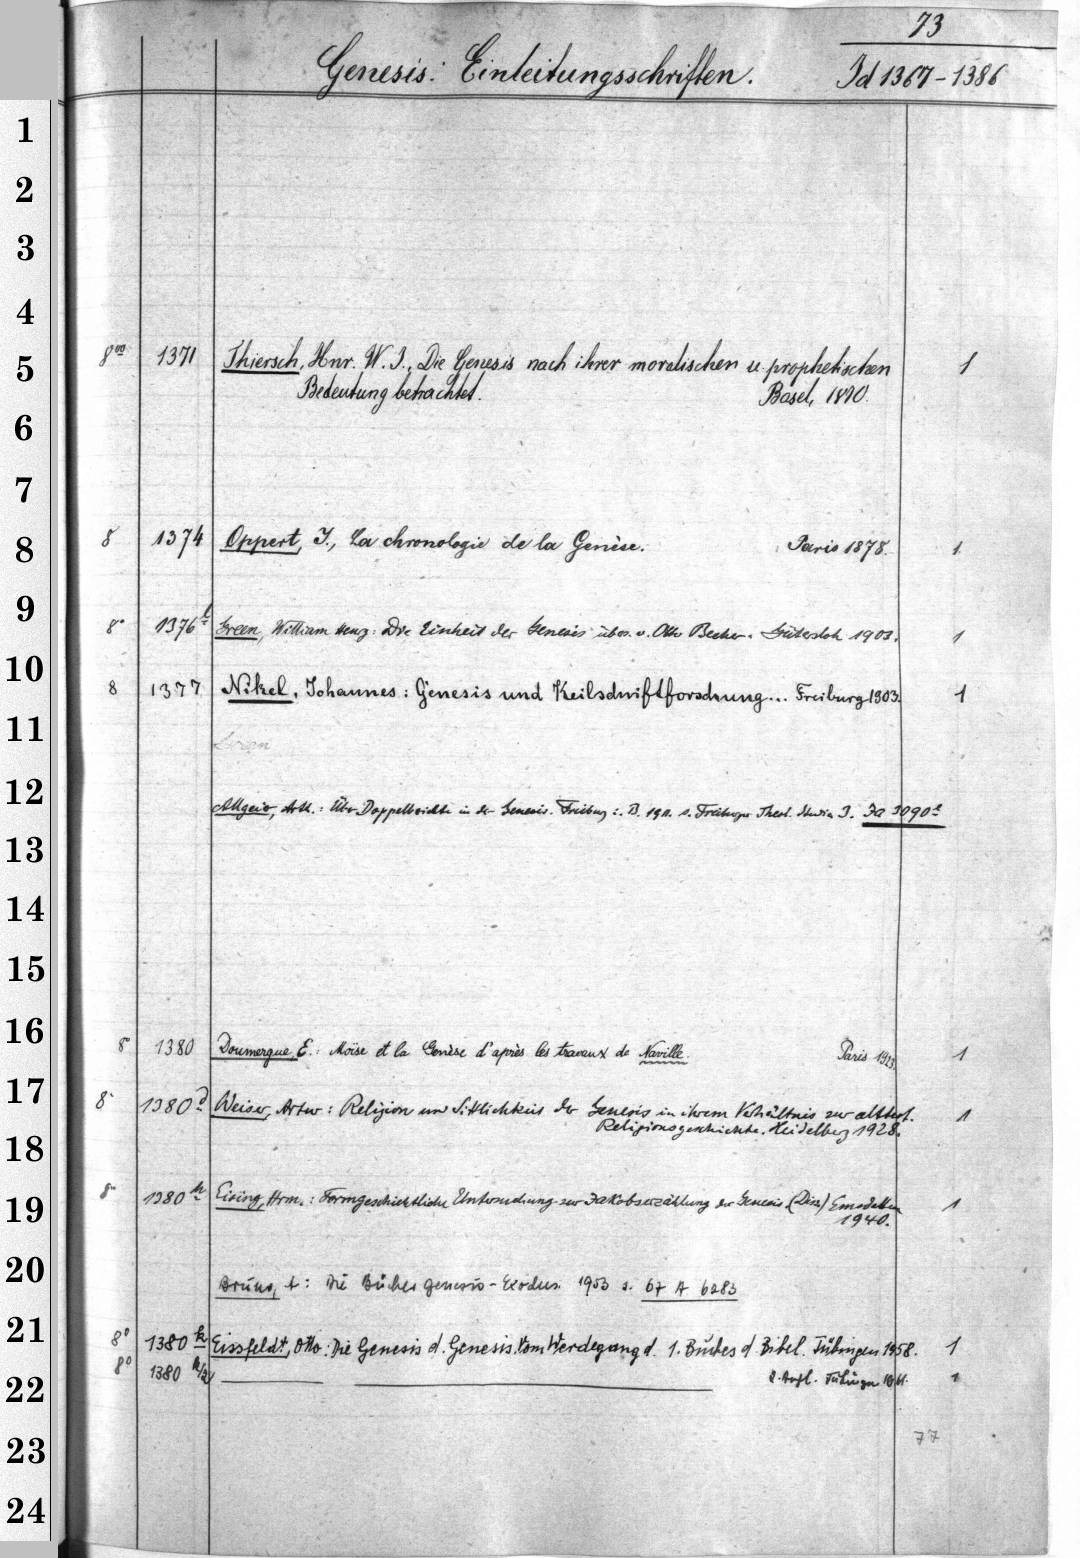 73
Genesis: Einleitungsschriften. Id 1367-1386
1
2
3
4
8vo 1371 Thiersch, Hnr. W. J., Die Genesis nach ihrer moralischen u. prophetischen 1
5
Bedeutung betrachtet. Basel, 1870.
6
7
8 1374 Oppert, J., La chronologie de la Genèse. Paris 1878. 1
8
9
8° 1376 Green, William Henry: Die Einheit der Genesis übers. v. Otto Becher. Gütersloh 1903. 1
10
8 1377 Nikel, Johannes: Genesis und Keilschriftforschung... Freiburg 1903. 1
11
12
Allgeier, Arth.: Über Doppelberichte in der Genesis. Freiburg i. B. 1911. s. Freiburger Theol. Studien 3. Ia 3090
13
14
15
16
8° 1380 Doumergue, E.: Moïse et la Genèse d'après les travaux de Naville. Paris 1923. 1
17
8° 1380 d Weiser, Artur: Religion und Sittlichkeit der Genesis in ihrem Verhältnis zur alttest. 1
Religionsgeschichte. Heidelberg 1928.
18
8° 1380 h Eising, Hrm.: Formgeschichtliche Untersuchung zur Jakobserzählung der Genesis (Diss.) Emsdetten 1
19
1940.
20
Bruns, : Die Bücher Genesis-Exodus. 1953 s. 67 A 6283
21
8° 1380 k Eissfeldt, Otto: Die Genesis d. Genesis. Vom Werdegang d. 1. Buches d. Bibel. Tübingen 1958. 1
8° 1380 k/2 2. Aufl. Tübingen 1961. 1
22
77
23
24